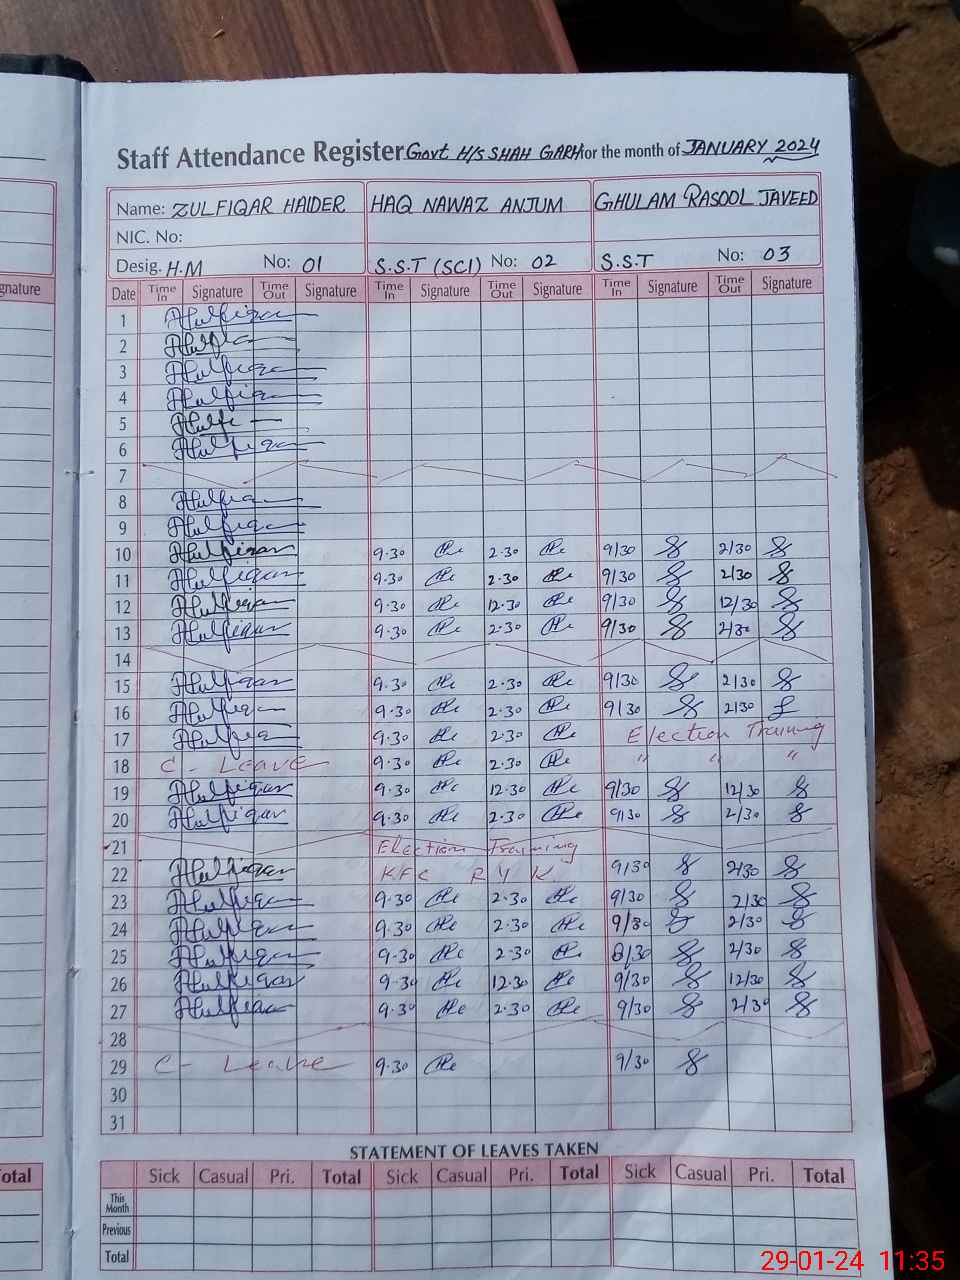 Staff Attendance Register Govt H/S SHAH GARH for the month of JANUARY 2024
Name: ZULFIQAR HAIDER HAQ NAWAZ ANJUM GHULAM RASOOL JAVEED
NIC. No:
Desig. H.M No: 01 S.S.T (SCI) No: 02 S.S.T No: 03
gnature Date Time In Signature Time Out Signature Time In Signature Time Out Signature Time In Signature Time Out Signature
1 Zulfiqar
2
3 Zulfiqar
4 Zulfiqar
5
6 Zulfiqar
7
8 Zulfiqar
9 Zulfiqar
10 Zulfiqar 9.30 2.30 9/30 2/30
11 Zulfiqar 9.30 2.30 9/30 2/30
12 Zulfiqar 9.30 12.30 9/30 12/30
13 Zulfiqar 9.30 2.30 9/30 2/30
14
15 Zulfiqar 9.30 2.30 9/30 2/30
16 Zulfiqar 9.30 2.30 9/30 2/30
17 Zulfiqar 9.30 2.30 Election Training
18 C - Leave 9.30 2.30 " " "
19 Zulfiqar 9.30 12.30 9/30 12/30
20 Zulfiqar 9.30 2.30 9/30 2/30
21 Election Training
22 Zulfiqar KFC R Y K 9/30 2/30
23 Zulfiqar 9.30 2.30 9/30 2/30
24 Zulfiqar 9.30 2.30 9/30 2/30
25 Zulfiqar 9.30 2.30 8/30 2/30
26 Zulfiqar 9.30 12.30 9/30 12/30
27 Zulfiqar 9.30 2.30 9/30 2/30
28
29 C - Leave 9.30 9/30
30
31
STATEMENT OF LEAVES TAKEN
otal Sick Casual Pri. Total Sick Casual Pri. Total Sick Casual Pri. Total
This Month
Previous
Total
29-01-24 11:35